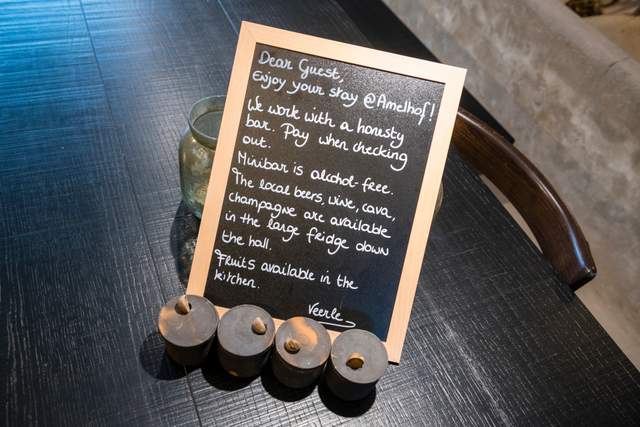 Dear Guest,
Enjoy your stay @Amelhof!
We work with a honesty
bar. Pay when checking
out.
Minibar is alcohol-free.
The local beers, wine, cava,
champagne are available
in the large fridge down
the hall.
Fruits available in the
kitchen.
Veerle